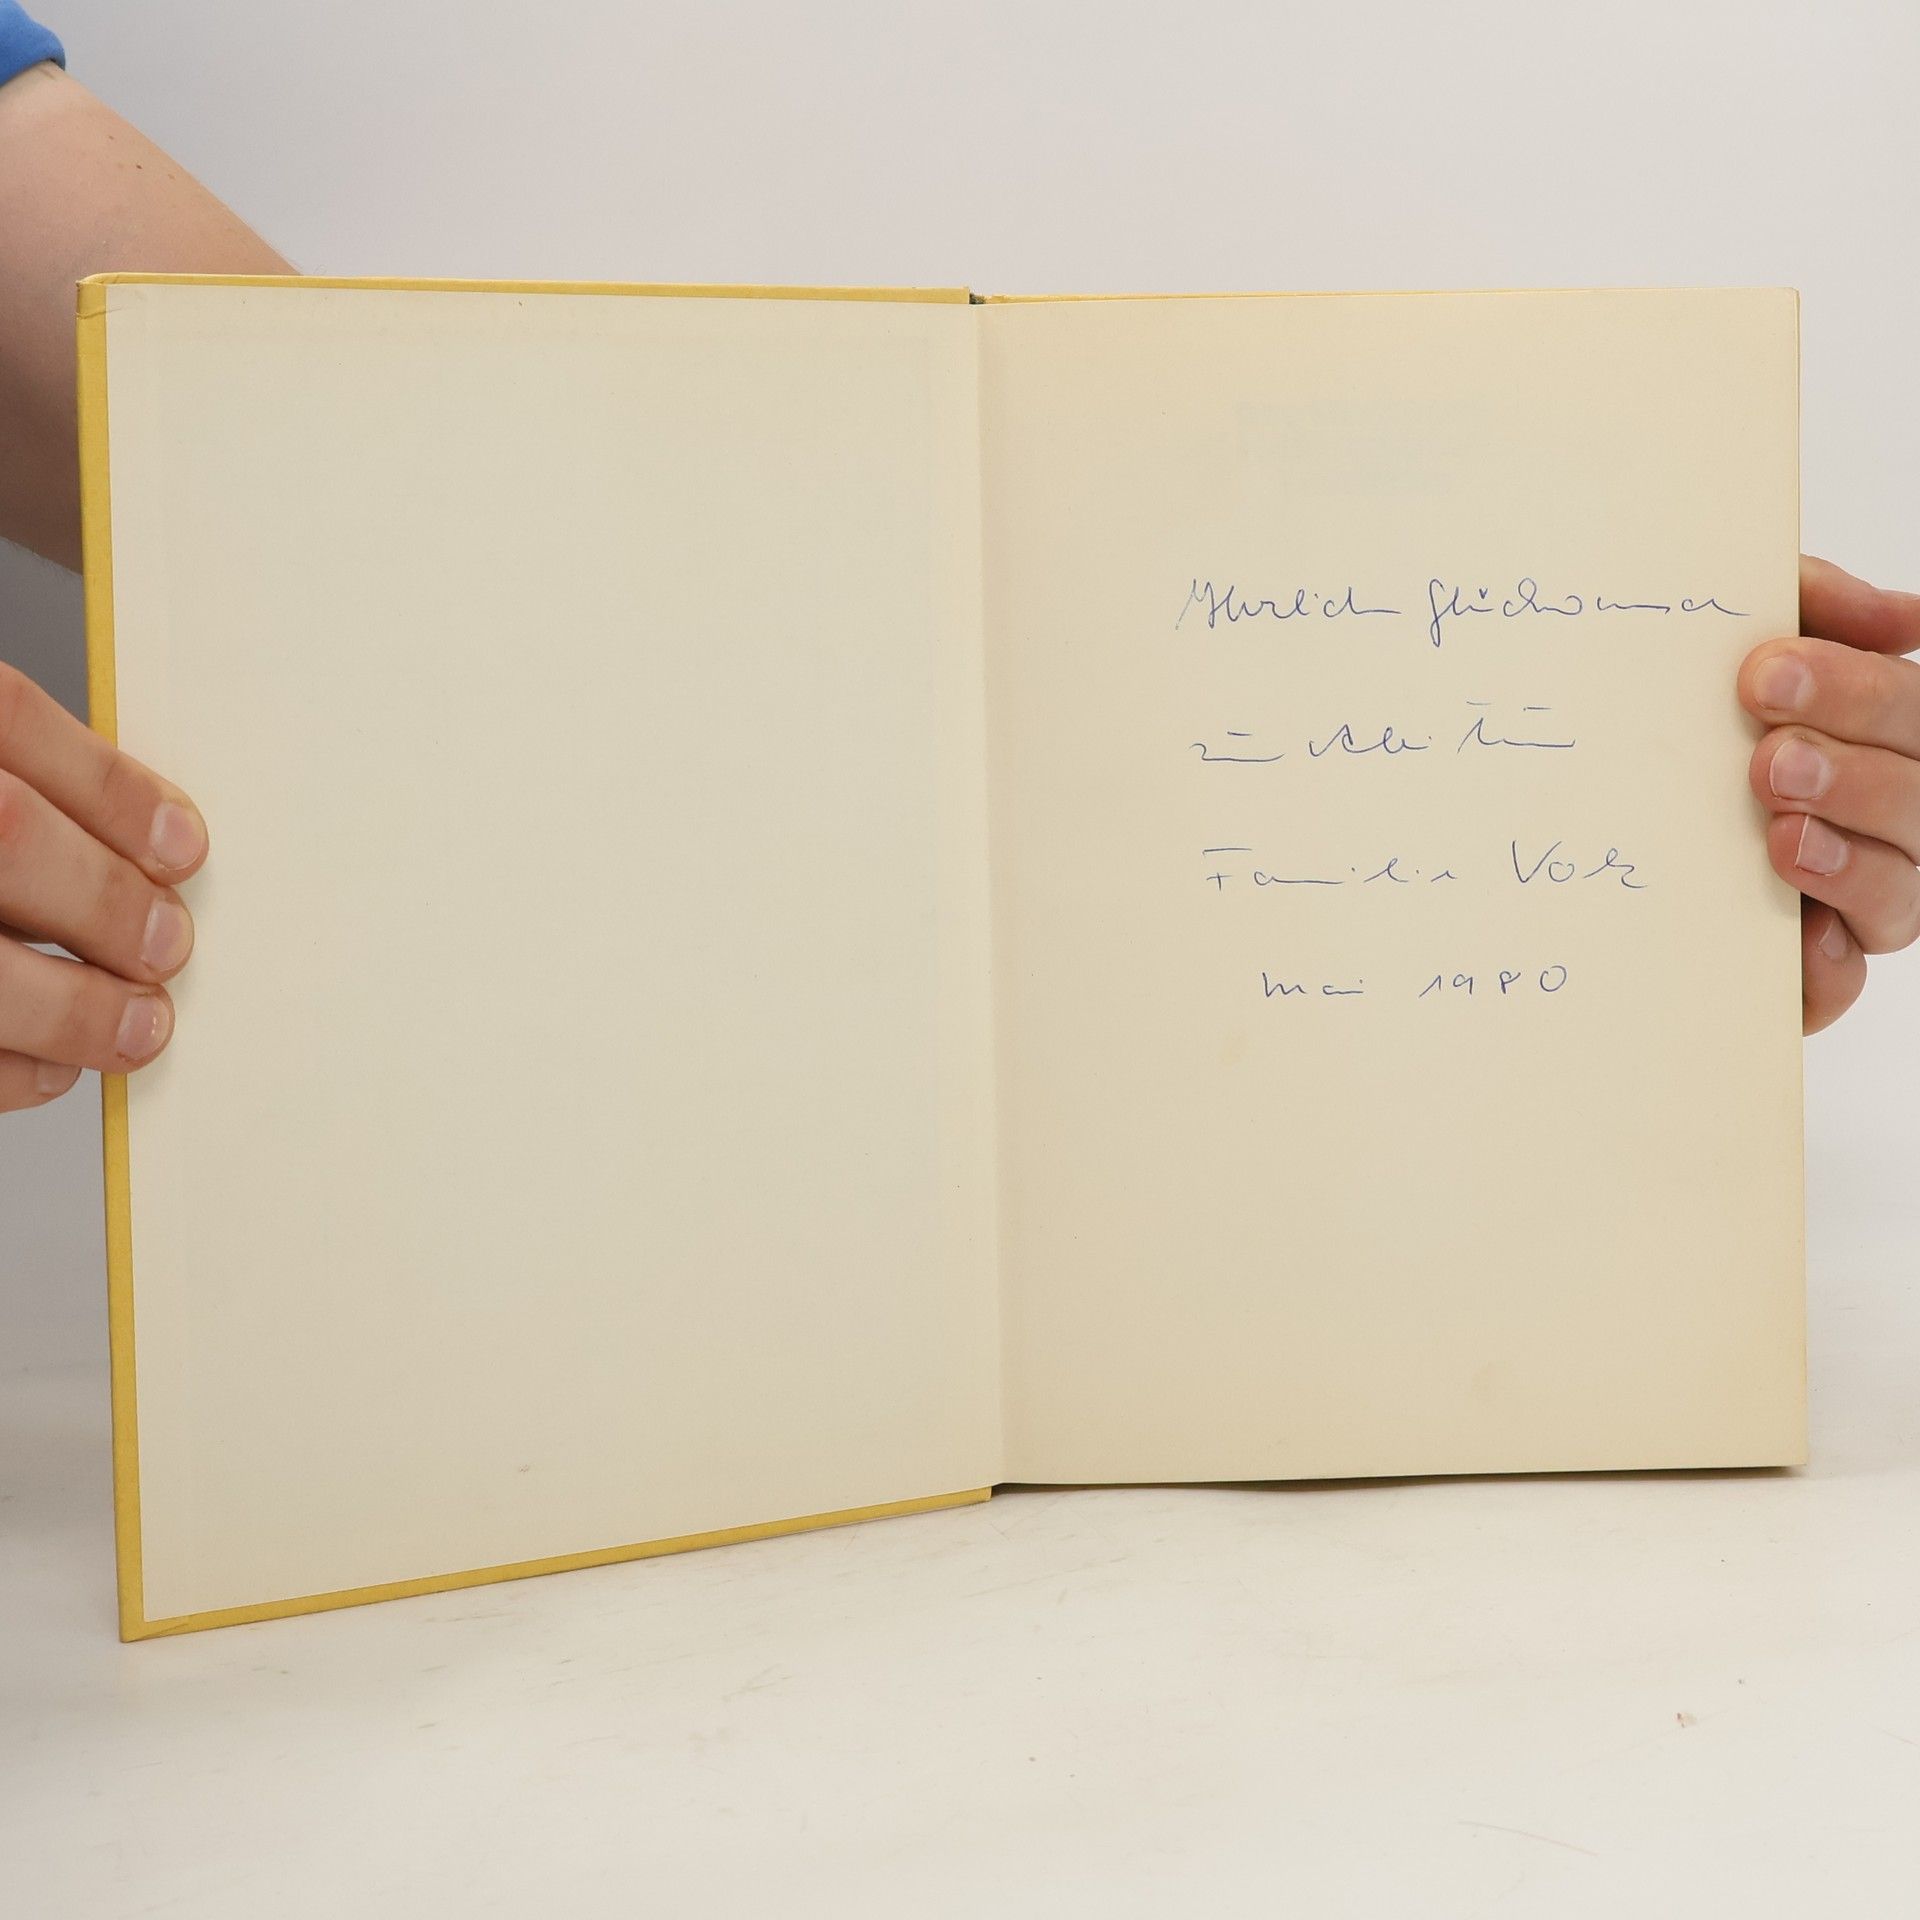 Herzlich Glückwunsch
zum Abitur
Familie Volz
Mai 1980